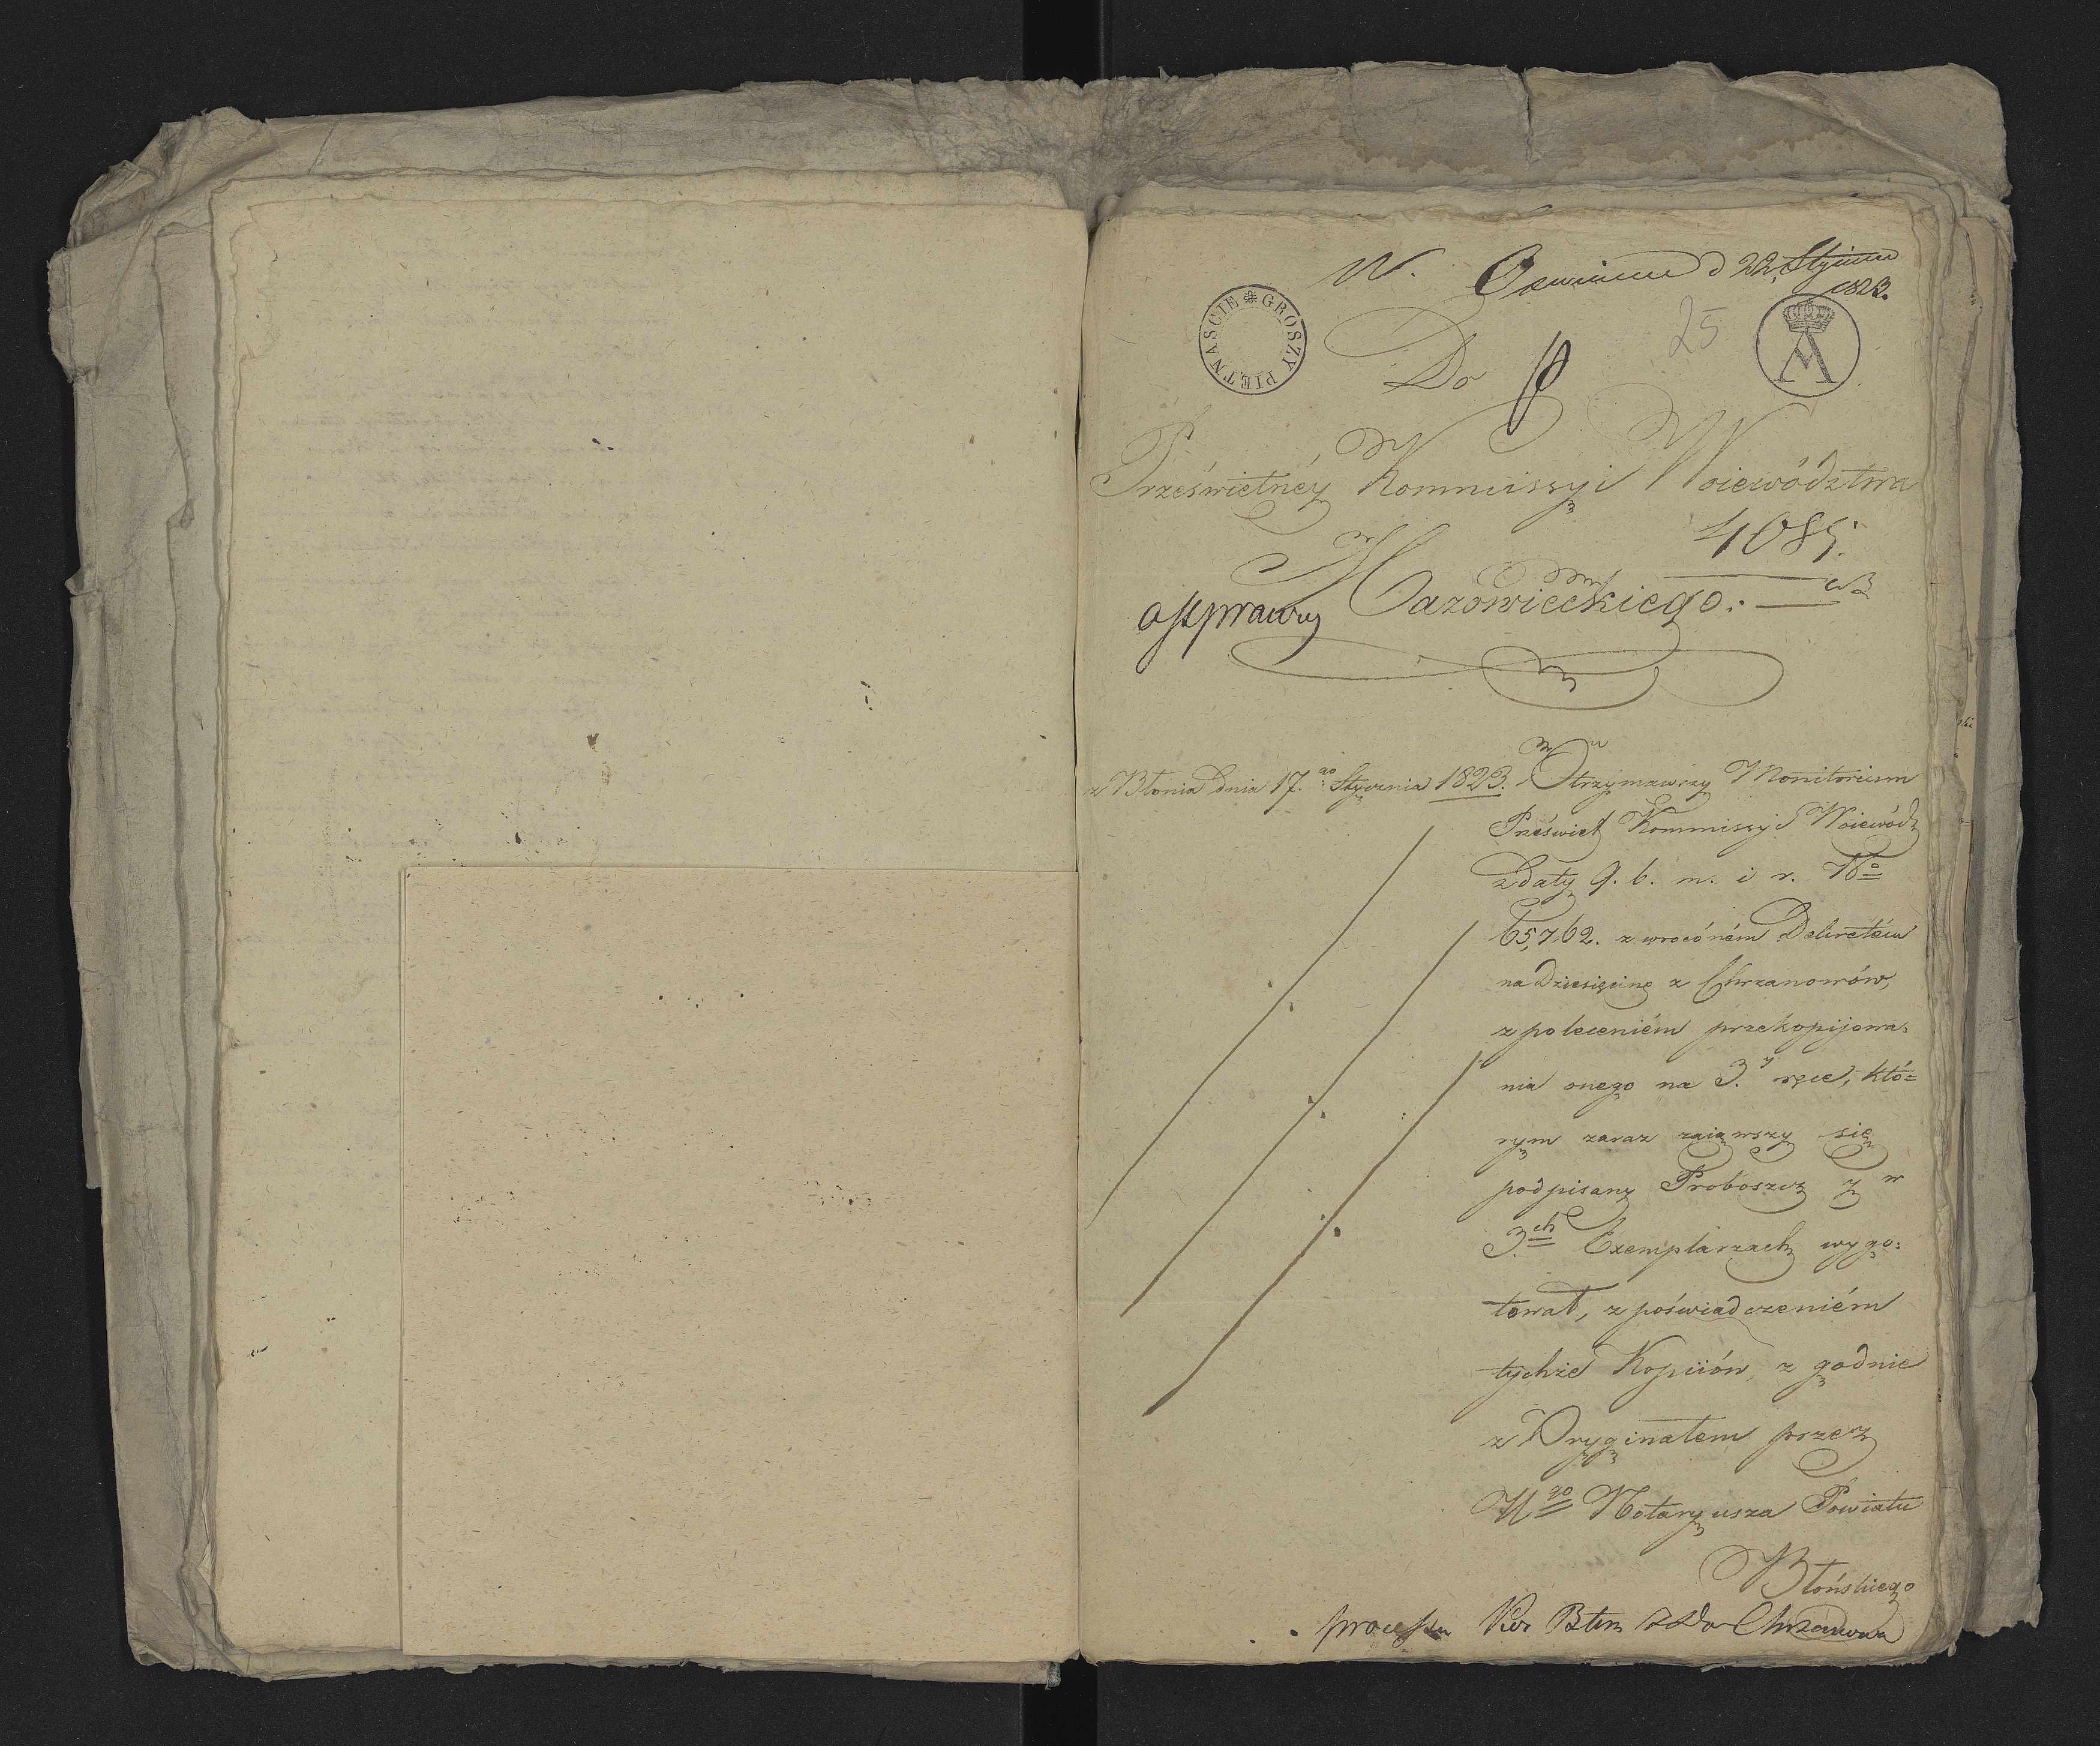 W. d 22 Stycznia
1823.
GROSZY PIĘTNAŚCIE
25
A
Do
Prześwietnéy Kommissyi Woiewództwa
4085.
Mazowieckiego.
z Błonia Dnia 17.go Stycznia 1823. Otrzymawszy Monitorium
Przeświet Kommissyi Woiewódz
z Daty 9. b. m. i r. No
65,762. z wrocóném Dekretém
na Dziesięcinę z Chrzanowów,
z poleceniém przekopijowa=
nia onego na 3. ręce, któ=
rym zaraz zaiąwszy się
podpisany Proboszcz y w
3.ch Exemplarzach wygo=
tował, z poświadczeniém
tychże Kopiiów z godnie
z Oryginałem przez
Wgo Notaryusza Powiatu
Błońskiego
processu Chrzanowa